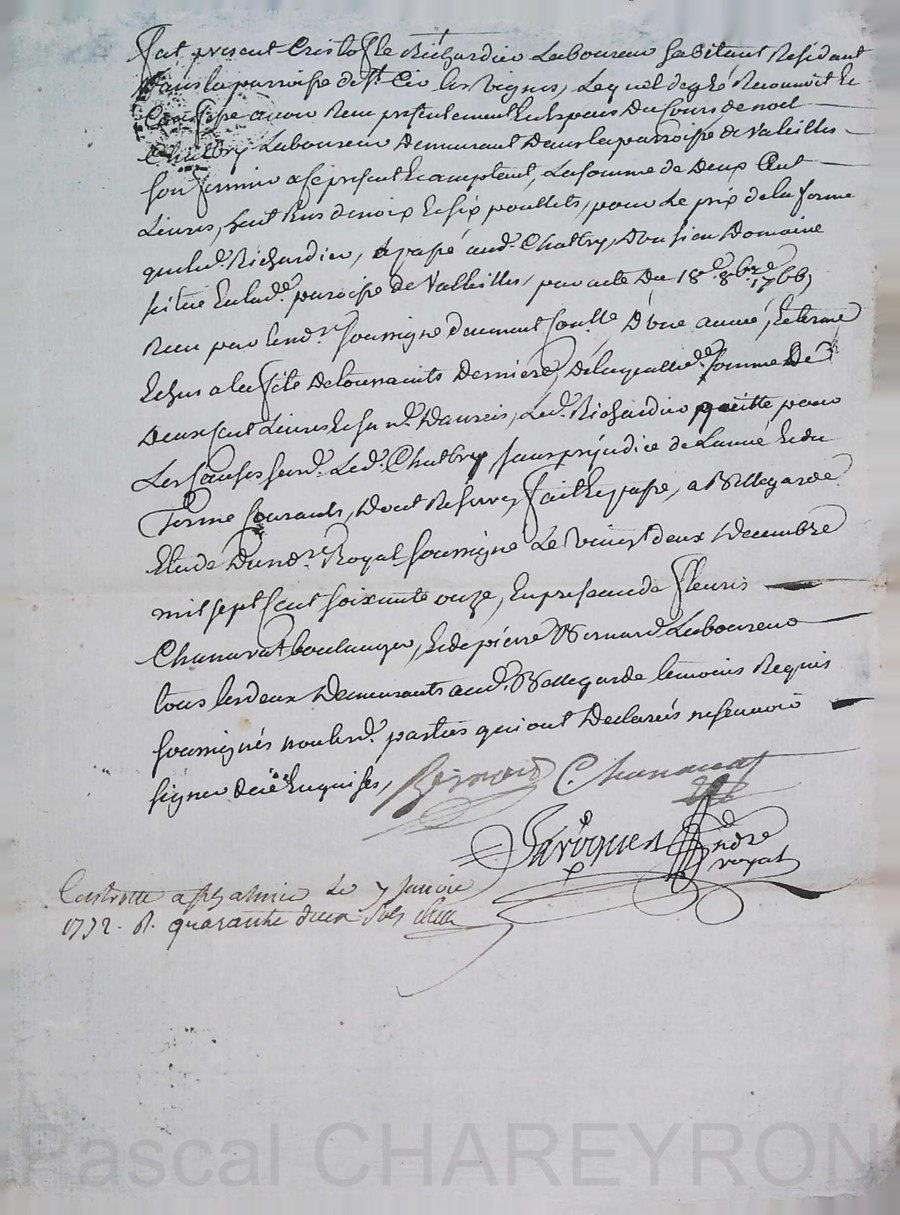 fut present Cristofle Richardier Laboureur habitant Residant
dans la parroisse de St. Cir les vignes, Lequel de gré Reconnoit Et
Confesse avoir Reçu presentement En Especes Du Cours de noel
Chatbry Laboureur Demeurant Dans la parroisse de Valeilles
son fermier a ce present Et acceptant, La somme de Deux Cent
Livres, huit Eus de noix Et six poullets, pour Le prix de la ferme
que led. Richardier, a passé aud. Chatbry, D'un sien Domaine
situé En lad.e parroisse de Valleilles, par acte Du 18e. 8bre. 1766,
Reçu par le nd.re soussigné duement Contllé, D'une année, Et terme
Echus a la fête De toussaints Derniere, De laquelle d.e somme De
Deux Cent Livres Et en n.e Davreis, Led. Richardier quitte pour
Les Causes sus d. Led. Chatbry sans prejudice de Lannée Et du
Terme Courants, Dont Reserve, fait Et passé, a Bellegarde
Etude Du nd.re Royal soussigné Le Vingt deux Decembre
mil sept Cent soixante onze, En presence de fleuris
Chanavat boulanger, Et de pierre Bernard Laboureur
tous Les deux Demeurants aud. Bellegarde temoins Requis
soussignés non les d. parties qui ont Declarés ne sçavoir
signer de ce Enquises,
Bernard C. Chanavat
Laroque nd.re royal
Controllé a St Galmier Le 7 Janvier
1772. R. quarante deux sols
Pascal CHAREYRON